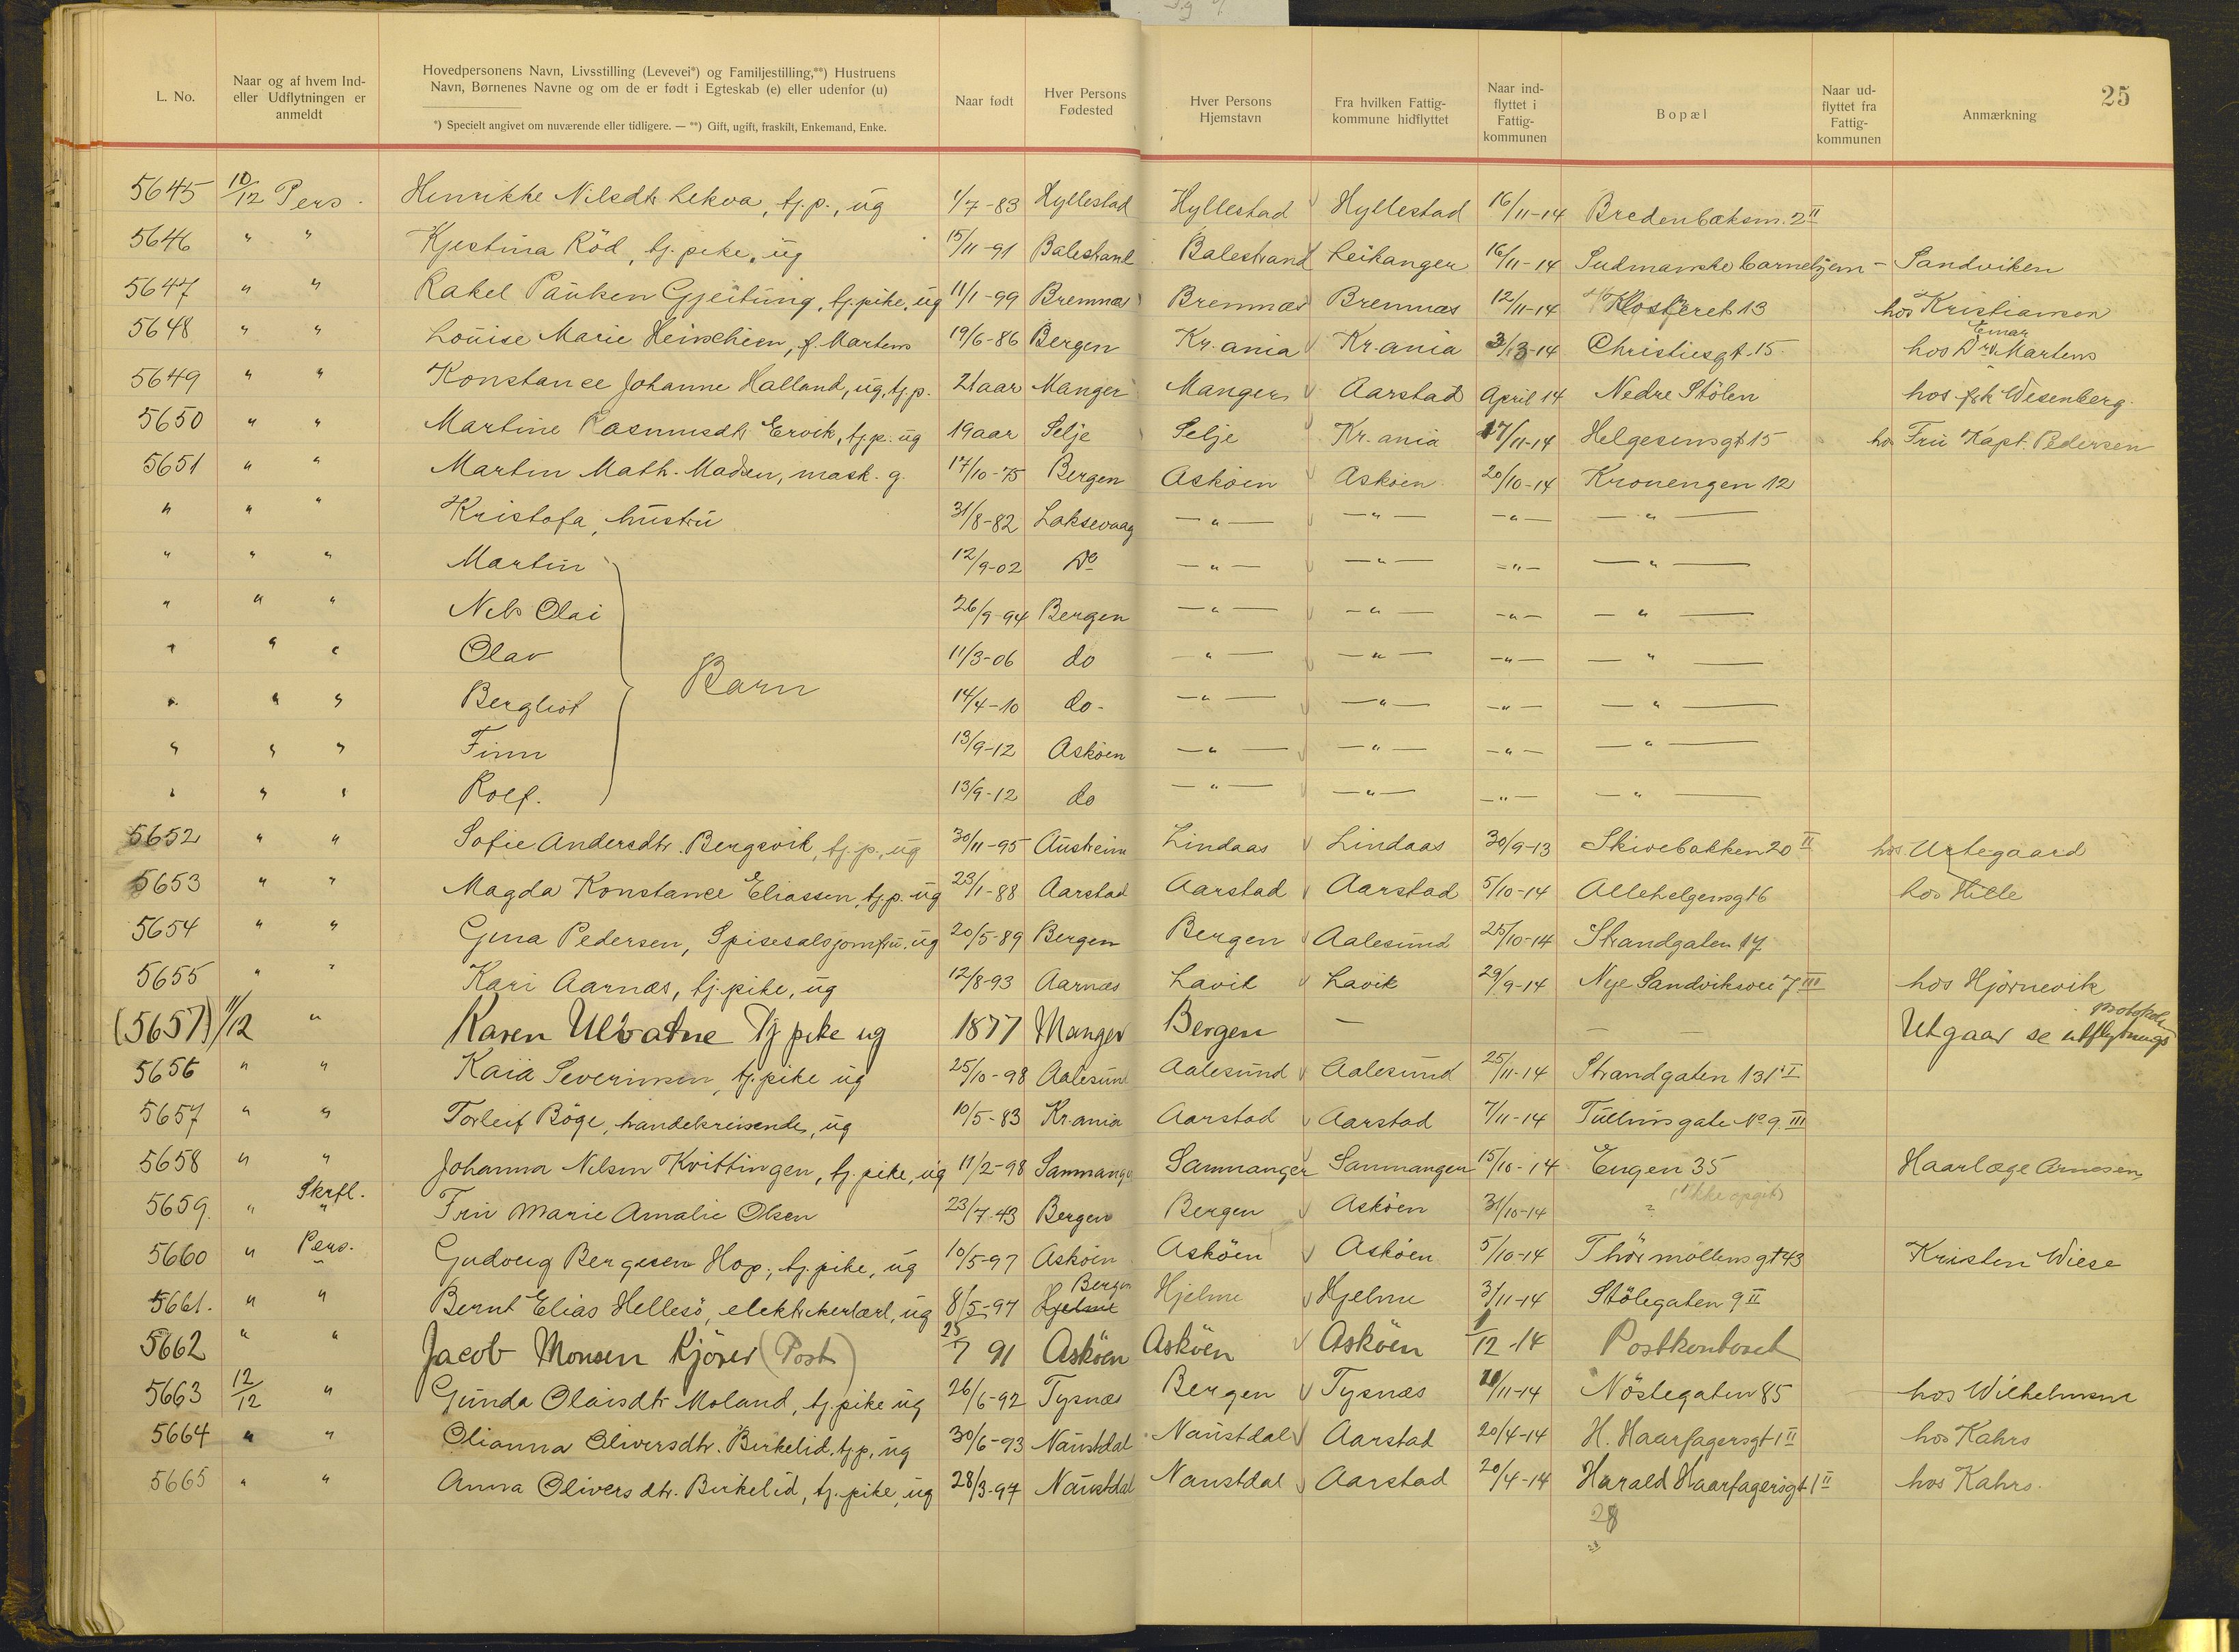 25
L. No.
Naar og af hvem Ind-
eller Udflytningen er
anmeldt
Hovedpersonens Navn, Livsstilling (Levevei*) og Familjestilling,**) Hustruens
Navn, Børnenes Navne og om de er født i Egteskab (e) eller udenfor (u)
*) Specielt angivet om nuværende eller tidligere. — **) Gift, ugift, fraskilt, Enkemand, Enke.
Naar født
Hver Persons
Fødested
Hver Persons
Hjemstavn
Fra hvilken Fattig-
kommune hidflyttet
Naar ind-
flyttet i
Fattig-
kommunen
Bopæl
Naar ud-
flyttet fra
Fattig-
kommunen
Anmærkning
5645 10/12 Pers. Henrikke Nilsdtr. Lekva, tj.p., ug 1/7-83 Hyllestad Hyllestad Hyllestad 16/11-14 Bredenbæksm. 2 II
5646 " " Kjestina Röd, tj. pike, ug 15/11-91 Balestrand Balestrand Leikanger 16/11-14 Sudmanske barnehjem - Sandviken
5647 " " Rakel Paulsen Gjeitung, tj. pike, ug 11/1-99 Bremnæs Bremnæs Bremnæs 12/11-14 Klosteret 13 hos Kristiansen
5648 " " Louise Marie Heinchien, f. Martens 19/6-86 Bergen Kr.ania Kr.ania 3/3-14 Christiesgt. 15 hos Dr. Einar Martens
5649 " " Konstance Johanne Halland, ug, tj.p. 21 aar Manger Manger Aarstad April 14 Nedre Stölen hos frk Wesenberg
5650 " " Martine Rasmusdtr. Ervik, tj.p. ug 19 aar Selje Selje Kr.ania 17/11-14 Helgesensgt 15 hos Fru Kapt. Pedersen
5651 " " Martin Math. Madsen, mask. g. 17/10-75 Bergen Asköen Asköen 20/10-14 Kronengen 12
" " " Kristofa, hustru 31/8-82 Laksevaag —"— —"— —"— —"—
" " " Martin 12/9-02 Do —"— —"— —"— —"—
" " " Nels Olai 26/9-94 Bergen —"— —"— —"— —"—
" " " Olav 11/3-06 do —"— —"— —"— —"—
" " " Bergliot Barn 14/4-10 do- —"— —"— —"— —"—
" " " Finn 13/9-12 Asköen —"— —"— —"— —"—
" " " Rolf. 13/9-12 do —"— —"— —"— —"—
5652 " " Sofie Andersdtr. Bergsvik, tj.p., ug 30/11-95 Austrheim Lindaas Lindaas 30/9-13 Skivebakken 20 II hos Urtegaard
5653 " " Magda Konstance Eliassen, tj.p. ug 23/1-88 Aarstad Aarstad Aarstad 5/10-14 Allehelgensgt 6 hos Hille
5654 " " Gina Pedersen, Spisesalsjomfru. ug 20/5-89 Bergen Bergen Aalesund 25/10-14 Strandgaten 17
5655 " " Kari Aarnæs, tj. pike, ug 12/8-93 Aarnæs Lavik Lavik 29/9-14 Nye Sandviksvei 7 III hos Hjörnevik
(5657) 11/12 " Karen Ulvatne Tj pike ug 1877 Manger Bergen — — — Utgaar se utflytnings protokol
5656 " " Kaia Severinsen, tj. pike ug 25/10-98 Aalesund Aalesund Aalesund 25/11-14 Strandgaten 131 I
5657 " " Torleif Böge, handelsreisende, ug 10/5-83 Kr.ania Aarstad Aarstad 7/11-14 Tullinsgate No 9. III
5658 " " Johanna Nilsen Kvittingen, tj. pike, ug 11/2-98 Sammanger Samnanger Samnanger 15/10-14 Engen 35 Haarlæge Arnesen
5659. " Skrfl. " Fru Marie Amalie Olsen 23/7-43 Bergen Bergen Asköen 31/10-14 (ikke opgit)
5660 " Pers. Gudveig Bergesen Hop, tj. pike, ug 10/5-97 Asköen Asköen Asköen 5/10-14 Thörmöllensgt 43 Kristen Wiese
5661. " " Bernt Elias Hellesö, elektrikerlærl, ug 8/5-97 Hjelme Bergen Hjelme Hjelme 3/11-14 Stölegaten 9 II
5662 " " Jacob Monsen Kjörer (Post) 25/7 91 Asköen Asköen Asköen 1/12-14 Postkontoret
5663 12/12 " Gunda Olaisdtr Moland, tj. pike ug 26/6-92 Tysnæs Bergen Tysnæs 20/11-14 Nöstegaten 85 hos Wilhelmsen
5664 " " Olianna Oliversdtr. Birkelid, tj.p, ug 30/6-93 Naustdal Naustdal Aarstad 20/4-14 H. Haarfagersgt 1 II hos Kahrs
5665 " " Anna Oliversdtr. Birkelid, tj. pike, ug 28/3-97 Naustdal Naustdal Aarstad 20/4-14 Harald Haarfagersgt 1 II hos Kahrs.
28